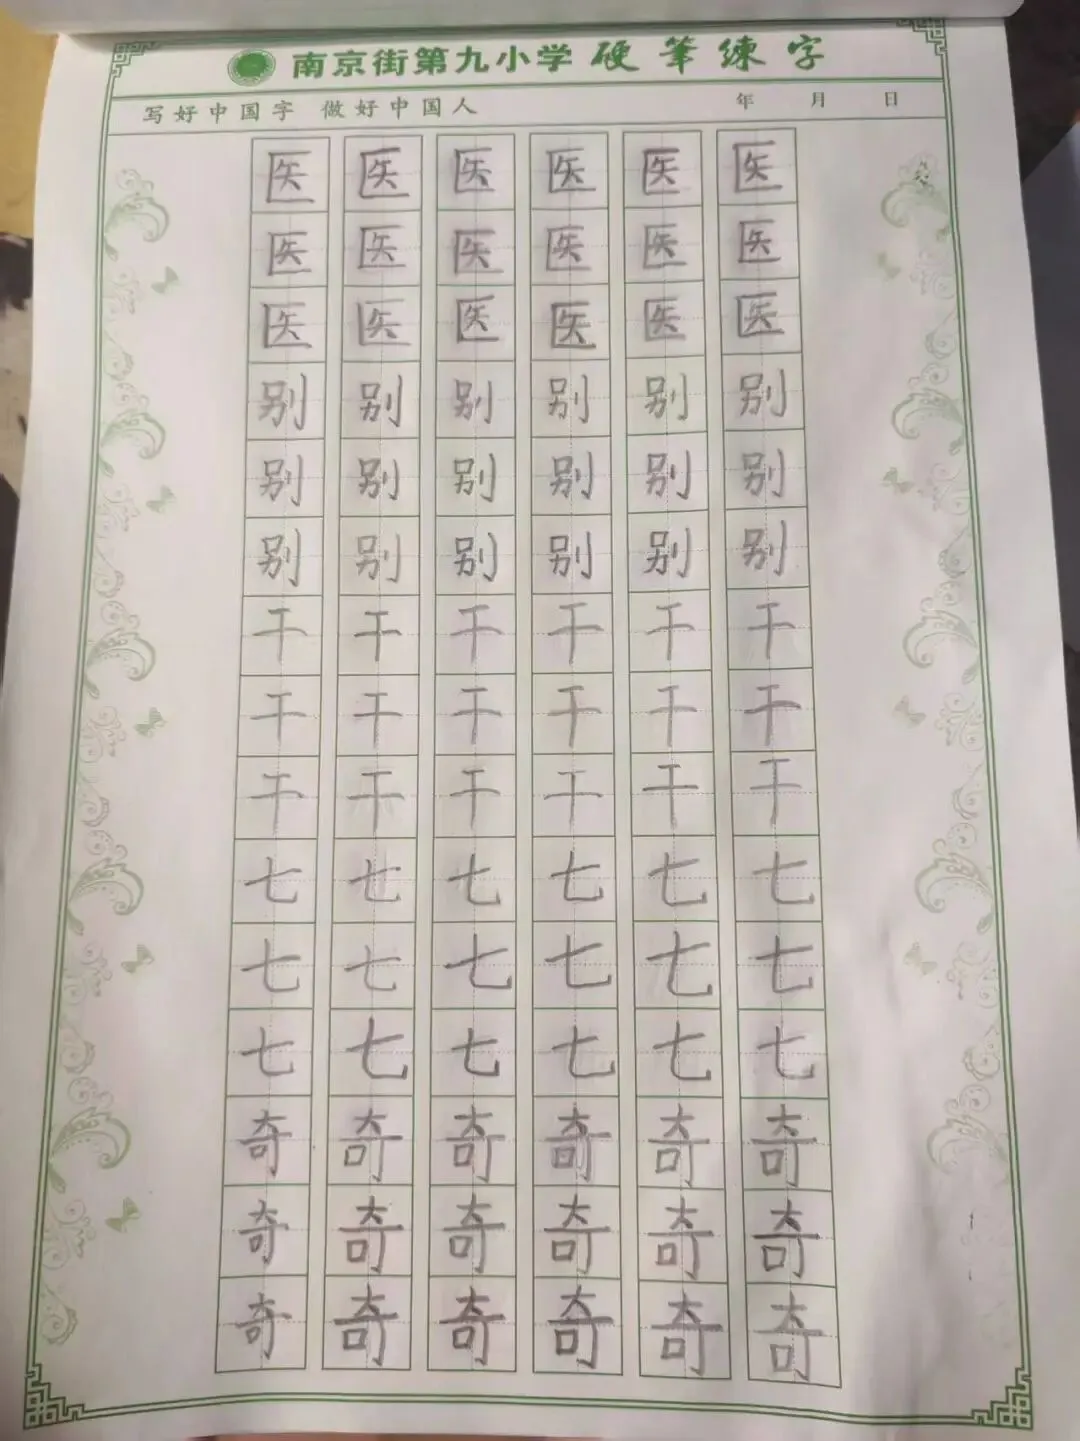 南京街第九小学 硬筆練字
写好中国字 做好中国人 年 月 日
医 医 医 医 医 医
医 医 医 医 医 医
医 医 医 医 医 医
别 别 别 别 别 别
别 别 别 别 别 别
别 别 别 别 别 别
干 干 干 干 干 干
干 干 干 干 干 干
干 干 干 干 干 干
七 七 七 七 七 七
七 七 七 七 七 七
七 七 七 七 七 七
奇 奇 奇 奇 奇 奇
奇 奇 奇 奇 奇 奇
奇 奇 奇 奇 奇 奇